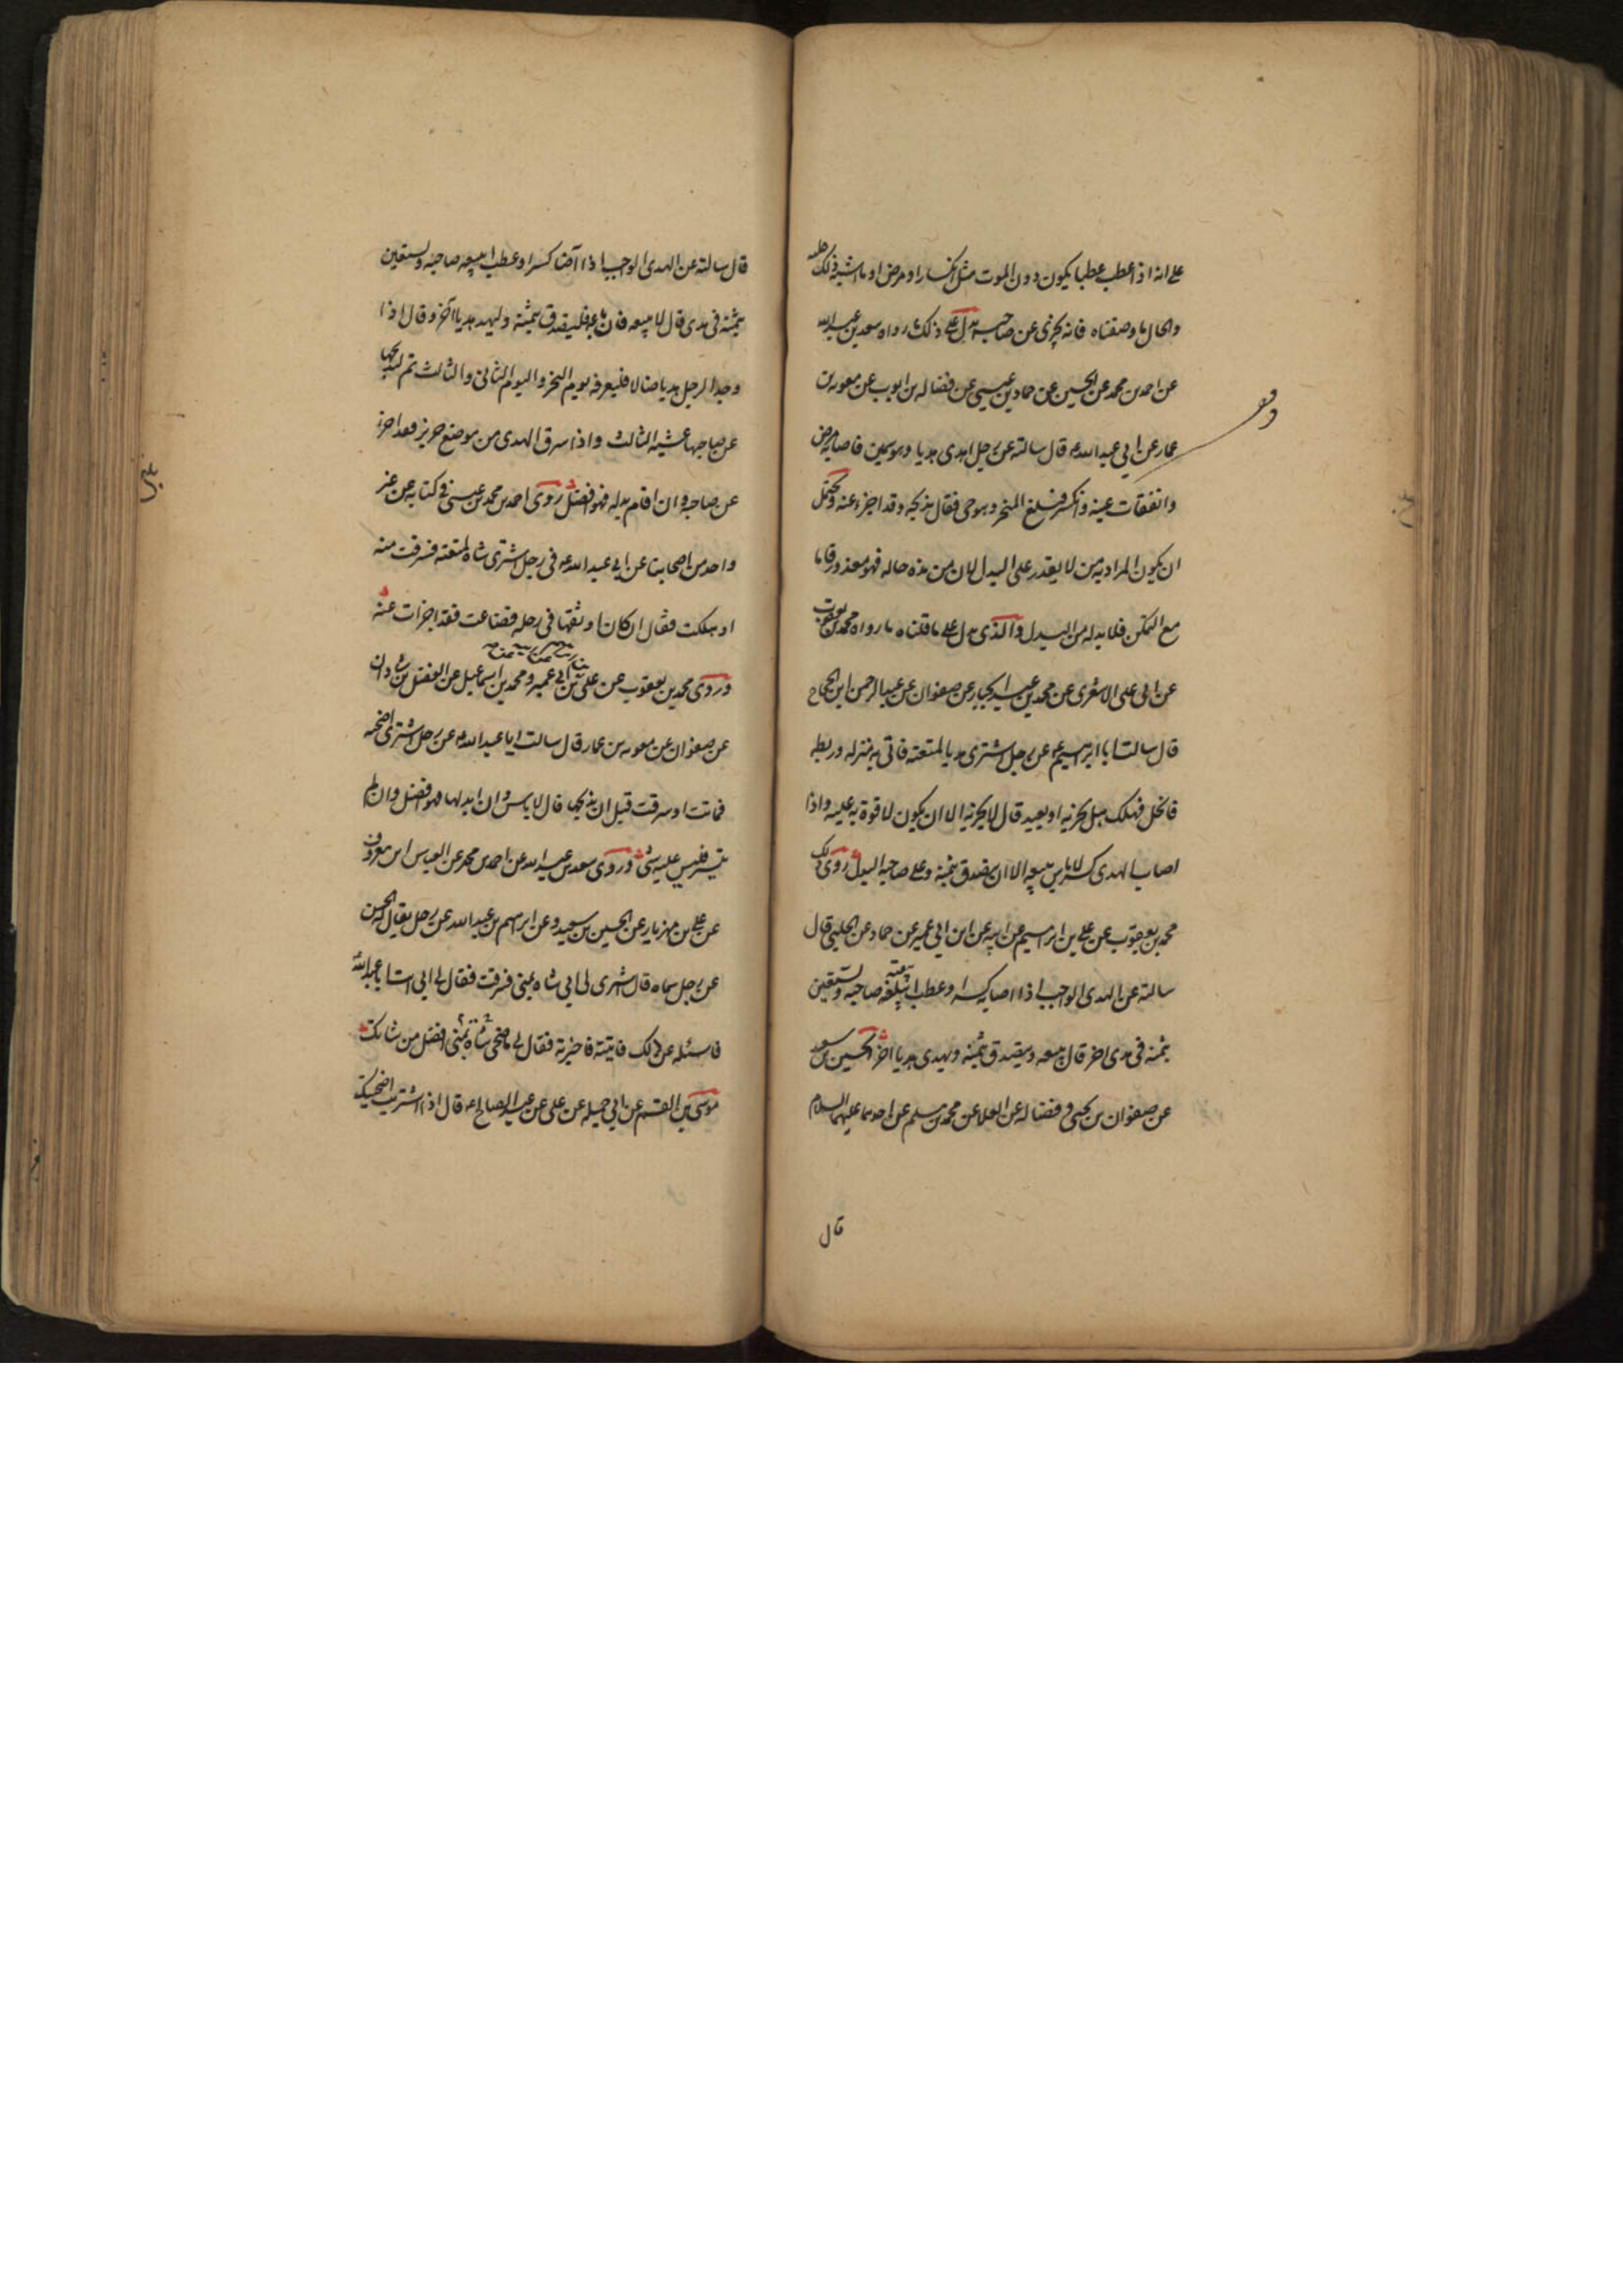 على انه اذا عطب عطبا يكون دون الموت مثل انكسار او مرض او ما اشبه ذلك
والحال ما وصفناه فانه يجزى عن صاحبه يدل على ذلك ما رواه سعد بن عبد الله
عن احمد بن محمد عن الحسين عن حماد بن عيسى عن فضاله بن ايوب عن معويه بن
عمار عن ابى عبد الله ع قال سالته عن رجل اهدى هديا وهو سمين فاصابه مرض
وانفقات عينه وانكسر فبلغ المنحر وهو حى فقال يذبحه وقد اجزء عنه ويحتمل
ان يكون المراد به من لا يقدر على البدل لان من هذه حاله فهو معذور فاما
مع التمكن فلا بد له من البدل والذى يدل على ما قلناه ما رواه محمد بن يعقوب
عن ابى على الاشعرى عن محمد بن عبد الجبار عن صفوان عن عبد الرحمن ابن الحجاج
قال سالت ابا ابرهيم ع عن رجل اشترى هديا لمتعته فاتى به منزله وربطه
فانحل فهلك هل يجزيه او يعيد قال لا يجزيه الا ان يكون لا قوة به عليه واذا
اصاب الهدى كسر لا باس ببيعه الا ان يتصدق بثمنه وعلى صاحبه البدل روى ذلك
محمد بن يعقوب عن على بن ابرهيم عن ابيه عن ابن ابى عمير عن حماد عن الحلبى قال
سالته عن الهدى الواجب اذا اصابه كسر او عطب ايبيعه صاحبه ويستعين
بثمنه فى هدى اخر قال يبيعه ويتصدق بثمنه ويهدى هديا اخر الحسين بن سعيد
عن صفوان بن يحيى وفضاله عن العلا عن محمد بن مسلم عن احدهما عليهما السلام
قال
قال سالته عن الهدى الواجب اذا اصابه كسر او عطب ايبيعه صاحبه ويستعين
بثمنه فى هدى قال لا يبيعه فان باعه فليتصدق بثمنه وليهد هديا آخر وقال اذا
وجد الرجل هديا ضالا فليعرفه يوم النحر واليوم الثانى والثالث ثم ليذبحها
عن صاحبها عشيه الثالث واذا سرق الهدى من موضع حريز فقد اجزء
عن صاحبه وان اقام بدله فهو افضل روى احمد بن محمد بن عيسى فى كتابه عن غير
واحد من اصحابنا عن ابى عبد الله ع فى رجل اشترى شاه لمتعته فسرقت منه
او هلكت فقال ان كان اوثقها فى رحله فضاعت فقد اجزات عنه
وروى محمد بن يعقوب عن على بن ابى عمير ومحمد بن اسماعيل عن الفضل بن شاذان
عن صفوان عن معويه بن عمار قال سالت ابا عبد الله ع عن رجل اشترى اضحيه
فماتت او سرقت قبل ان يذبحها قال لا باس وان ابدلها فهو افضل وان لم
يشتر فليس عليه شئ وروى سعد بن عبد الله عن احمد بن محمد عن العباس ابن معروف
عن على بن مهزيار عن الحسين بن سعيد وعن ابرهيم بن عبد الله عن رجل يقال له الحسن
عن رجل سماه قال اشترى لى ابى شاه بمنى فسرقت فقال لى ابى ائت ابا عبد الله
فاسئله عن ذلك فاتيته فاخبرته فقال لى ما ضحى بمنى شاة افضل من شاتك
موسى بن القسم عن ابى جميله عن على عن عبد الصالح ع قال اذا اشتريت اضحيتك